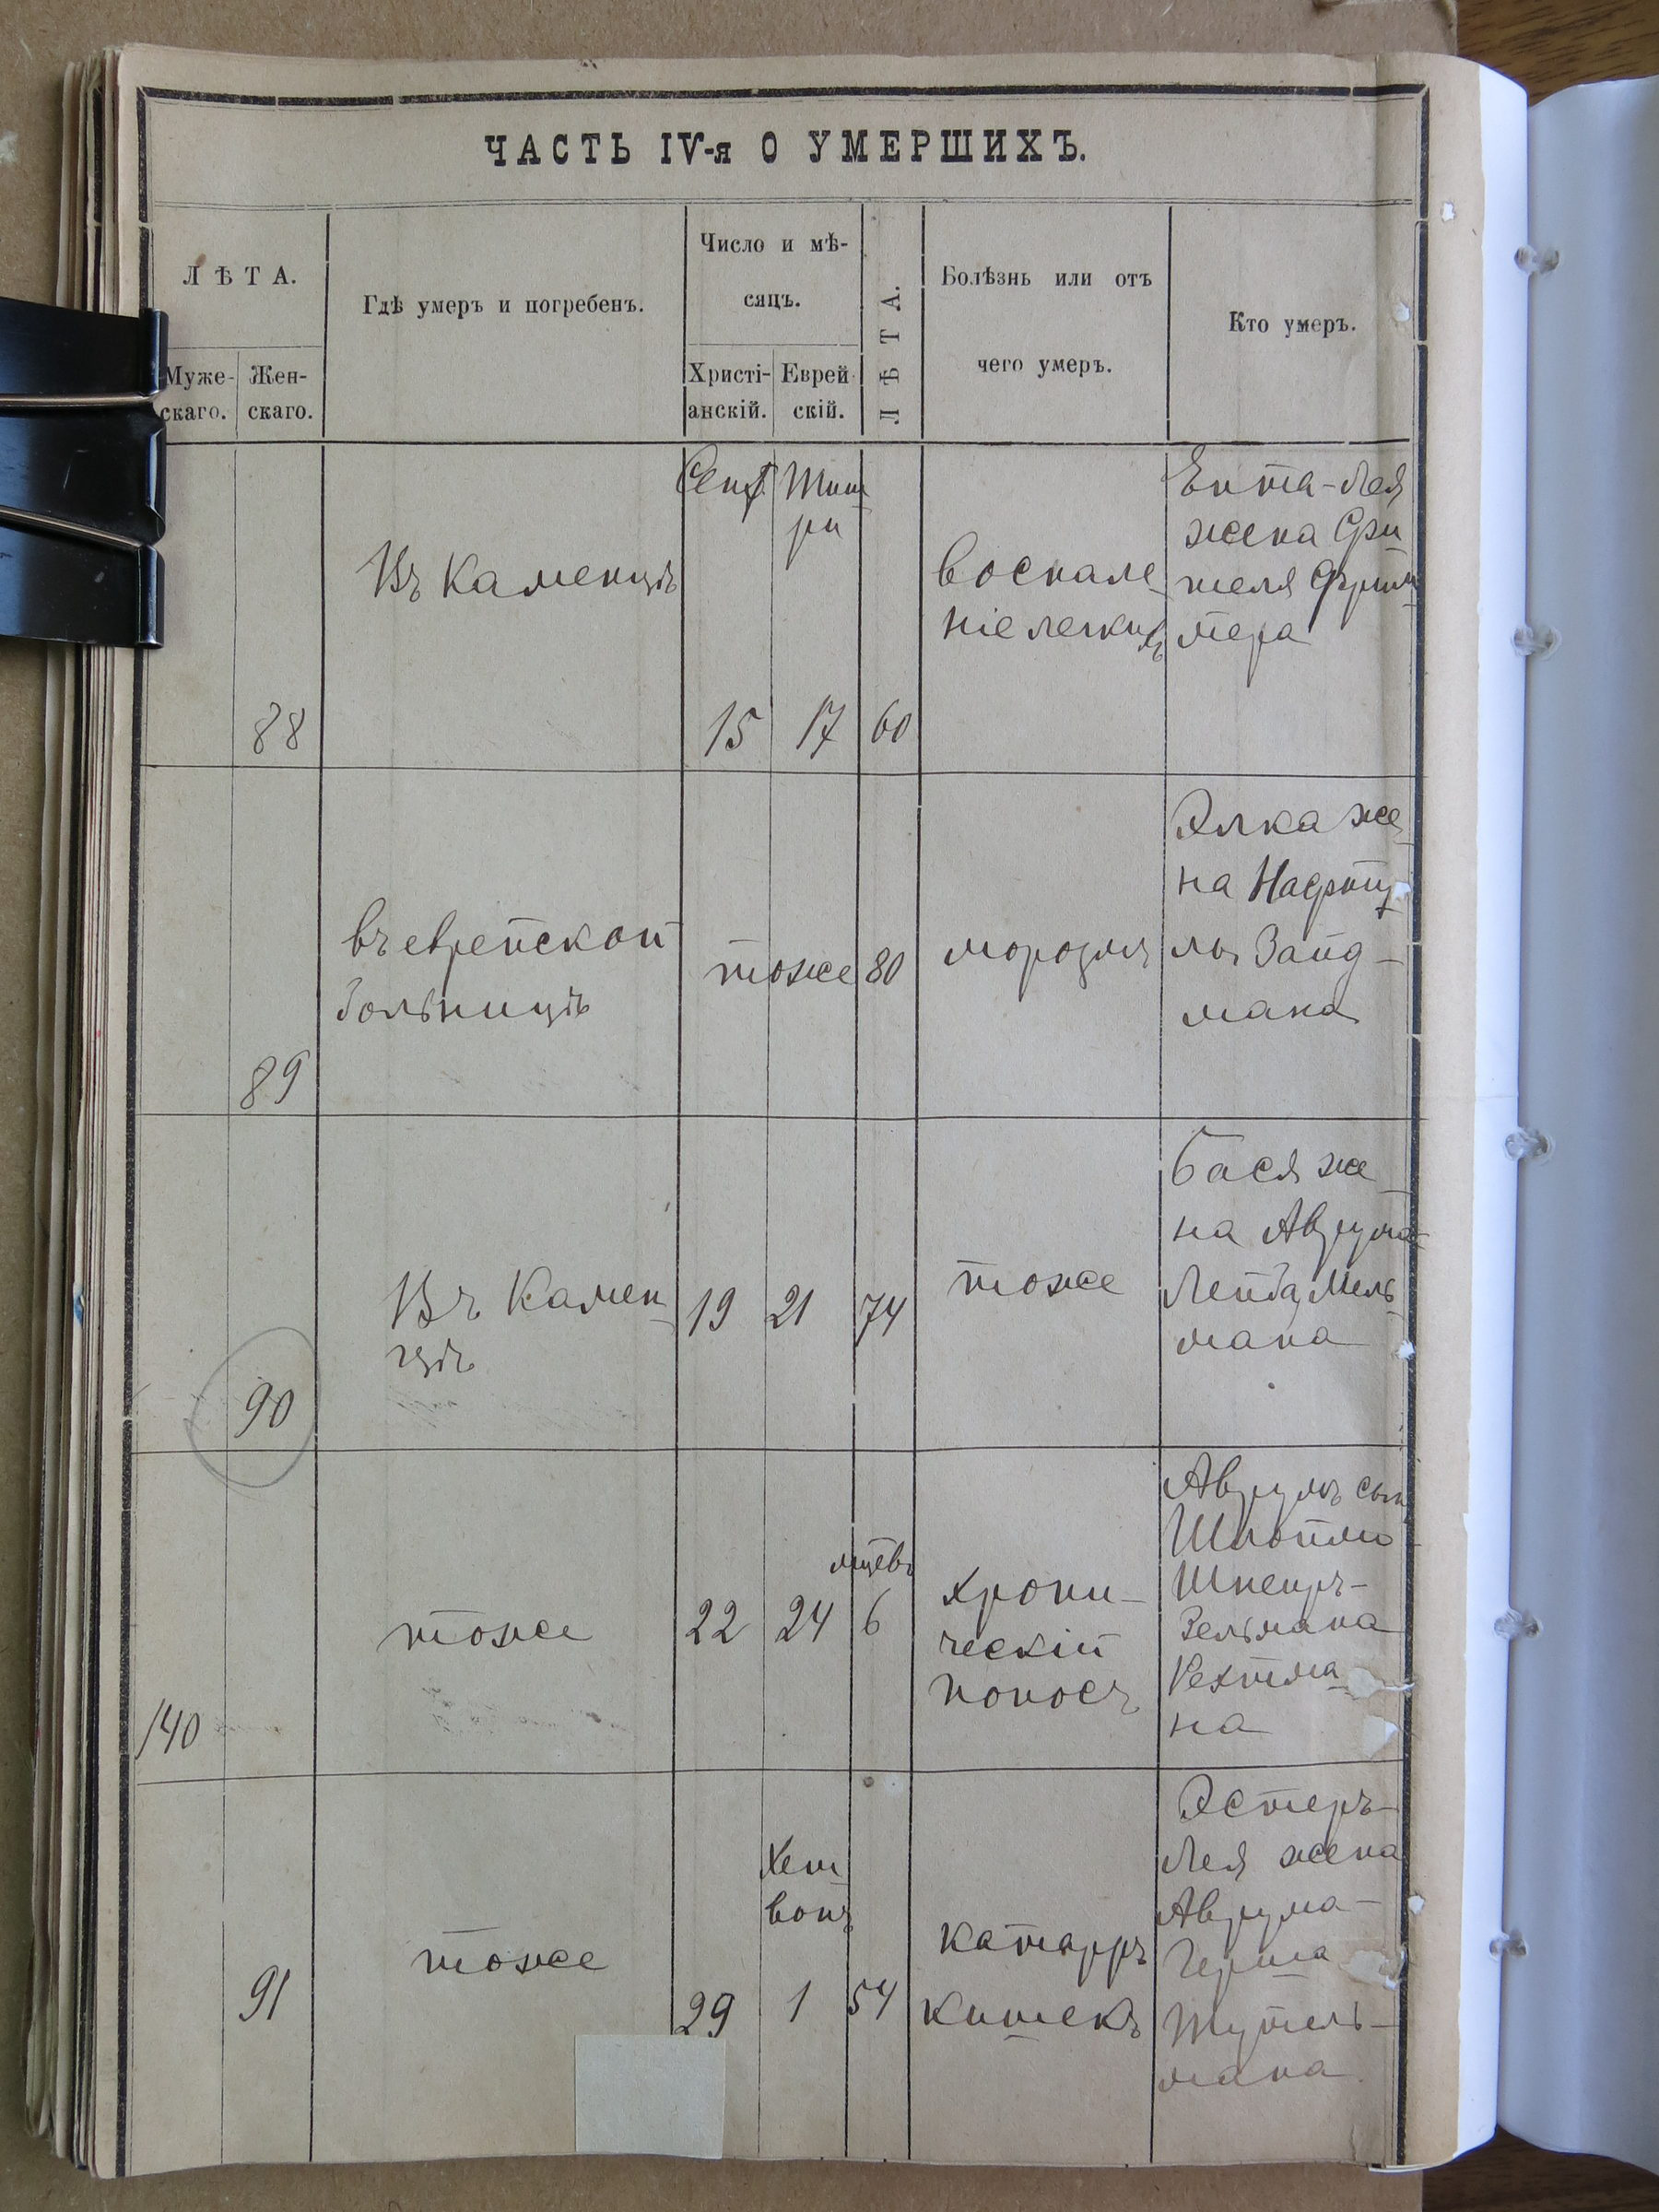 ЧАСТЬ IV-я О УМЕРШИХЪ.
ЛѢТА.
Муже-
скаго.
Жен-
скаго.
Гдѣ умеръ и погребенъ.
Число и мѣ-
сяцъ.
Христі-
анскій.
Еврей
скій.
ЛѢТА.
Болѣзнь или отъ
чего умеръ.
Кто умеръ.
88
Въ Каменцѣ
Сент
15
Тиш
ри
17
60
воспале
ніе легкихъ
Ента-Лея
жена
теля
тера
89
въ еврейской
больницѣ
тоже
80
Элка же
на Нафту
лы Зайд-
мана
90
Въ Камен
цѣ
19
21
74
тоже
Бася же
на Аврума
Лейба Мель
мана
140
тоже
22
24
мцевъ
6
хрони-
ческій
поносъ
Аврумъ сын
Шлоймо
Шнеиръ-
Зельмана
Рехтма
на
91
тоже
29
Хеш
вонъ
1
54
катарръ
кишекъ
Эстеръ-
Лея жена
Аврума-
Герша
мана